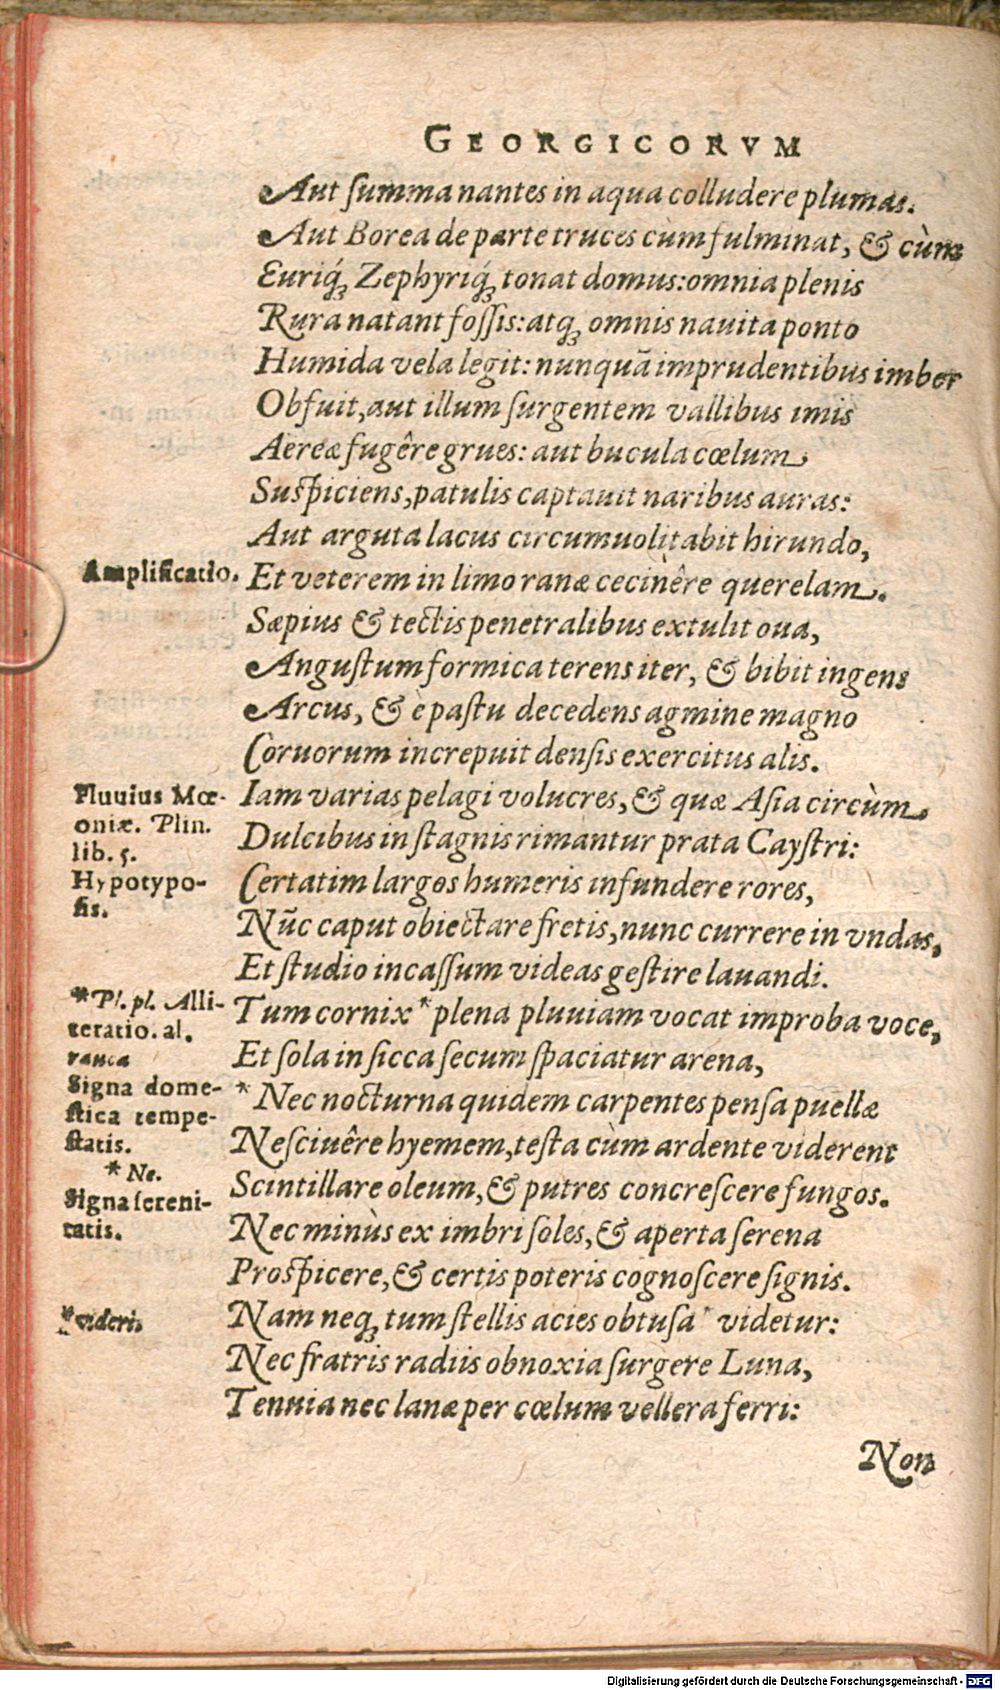 GEORGICORVM
Aut ſumma nantes in aqua colludere plumas.
Aut Borea de parte truces cùm fulminat, & cùm
Euriq́ꝫ Zephyriq́ꝫ tonat domus: omnia plenis
Rura natant foſſis: atqꝫ omnis nauita ponto
Humida vela legit: nunquā imprudentibus imber
Obfuit, aut illum ſurgentem vallibus imis
Aereæ fugêre grues: aut bucula cœlum
Suſpiciens, patulis captauit naribus auras:
Aut arguta lacus circumuolitabit hirundo,
Amplificatio.
Et veterem in limo ranæ cecinêre querelam.
Sæpius & tectis penetralibus extulit oua,
Anguſtum formica terens iter, & bibit ingens
Arcus, & è paſtu decedens agmine magno
Coruorum increpuit denſis exercitus alis.
Pluuius Mœ-
oniæ. Plin.
lib. 5.
Hypotypo-
ſis.
Iam varias pelagi volucres, & quæ Aſia circùm
Dulcibus in ſtagnis rimantur prata Cayſtri:
Certatim largos humeris infundere rores,
Nūc caput obiectare fretis, nunc currere in vndas,
Et ſtudio incaſſum videas geſtire lauandi.
*Pl. pl. Alli-
teratio. al.
rauca
Tum cornix * plena pluuiam vocat improba voce,
Et ſola in ſicca ſecum ſpaciatur arena,
Signa dome-
ſtica tempe-
ſtatis.
* Ne.
* Nec nocturna quidem carpentes penſa puellæ
Neſciuêre hyemem, teſta cùm ardente viderent
Scintillare oleum, & putres concreſcere fungos.
Signa ſereni-
tatis.
Nec minùs ex imbri ſoles, & aperta ſerena
Proſpicere, & certis poteris cognoſcere ſignis.
*videri.
Nam neqꝫ tum ſtellis acies obtuſa * videtur:
Nec fratris radiis obnoxia ſurgere Luna,
Tenuia nec lanæ per cœlum vellera ferri:
Non
Digitalisierung gefördert durch die Deutsche Forschungsgemeinschaft - DFG